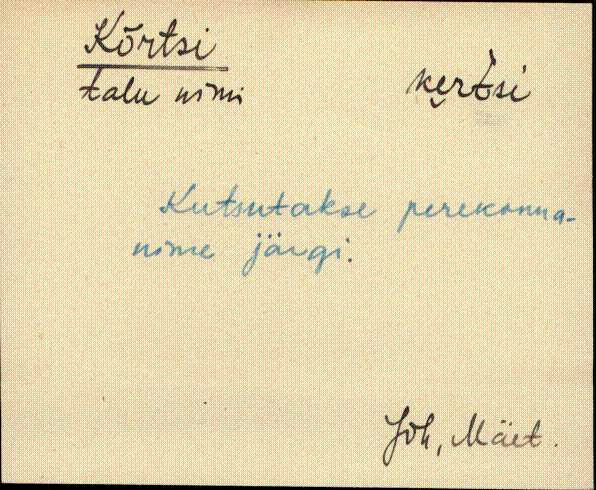 Kõrtsi
talu nimi
ke̮rt̀si
Kutsutakse perekonna-
nime järgi.
Joh, Mäet.